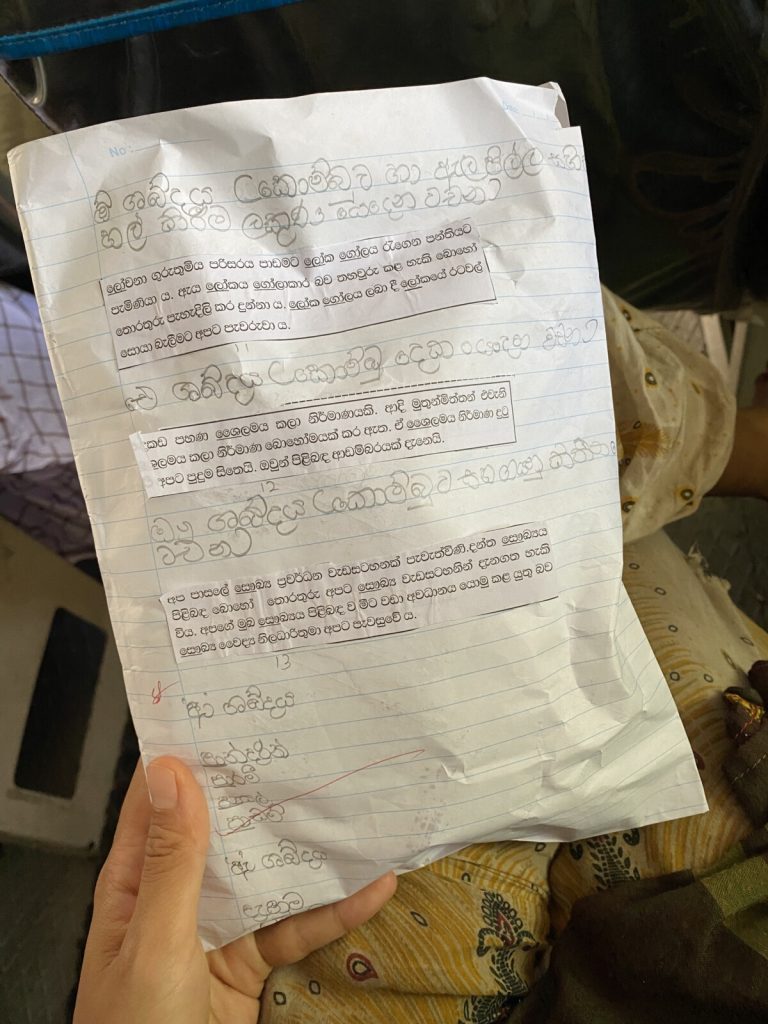 No :
Date :
ඕ ශබ්දය (කොම්බුව හා ඇලපිල්ල සහිත
හල් කිරීම ලකුණ යොදෙන වචන)
ලෝචනා ගුරුතුමිය පරිසරය පාඩමට ලෝක ගෝලය රැගෙන පන්තියට
පැමිණියා ය. ඇය ලෝකය ගෝලාකාර බව තහවුරු කළ හැකි බොහෝ
තොරතුරු පැහැදිලි කර දුන්නා ය. ලෝක ගෝලය ලබා දී ලෝකයේ රටවල්
සොයා බැලීමට අපට පැවරුවා ය.
ශබ්දය (කොම්බු දෙක යෙදෙන වචන)
කඩ පහණ ශෛලමය කලා නිර්මාණයකි. ආදි මුතුන්මිත්තන් එවැනි
ලමය කලා නිර්මාණ බොහෝමයක් කර ඇත. ඒ ශෛලමය නිර්මාණ දුටු
අපට පුදුම සිතෙයි. ඔවුන් පිළිබඳ ආඩම්බරයක් දැනෙයි.
12
ශබ්දය (කොම්බුව සහ ගයනු කිත්ත
වචන)
අප පාසලේ සෞඛ්‍ය ප්‍රවර්ධන වැඩසටහනක් පැවැත්විණි.දන්ත සෞඛ්‍යය
පිළිබඳ බොහෝ තොරතුරු අපට සෞඛ්‍ය වැඩසටහනින් දැනගත හැකි
විය. අපගේ මුඛ සෞඛ්‍යය පිළිබඳ ව මීට වඩා අවධානය යොමු කළ යුතු බව
සෞඛ්‍ය වෛද්‍ය නිලධාරිතුමා අපට පැවසුවේ ය.
13
ශබ්දය
ශබ්දය